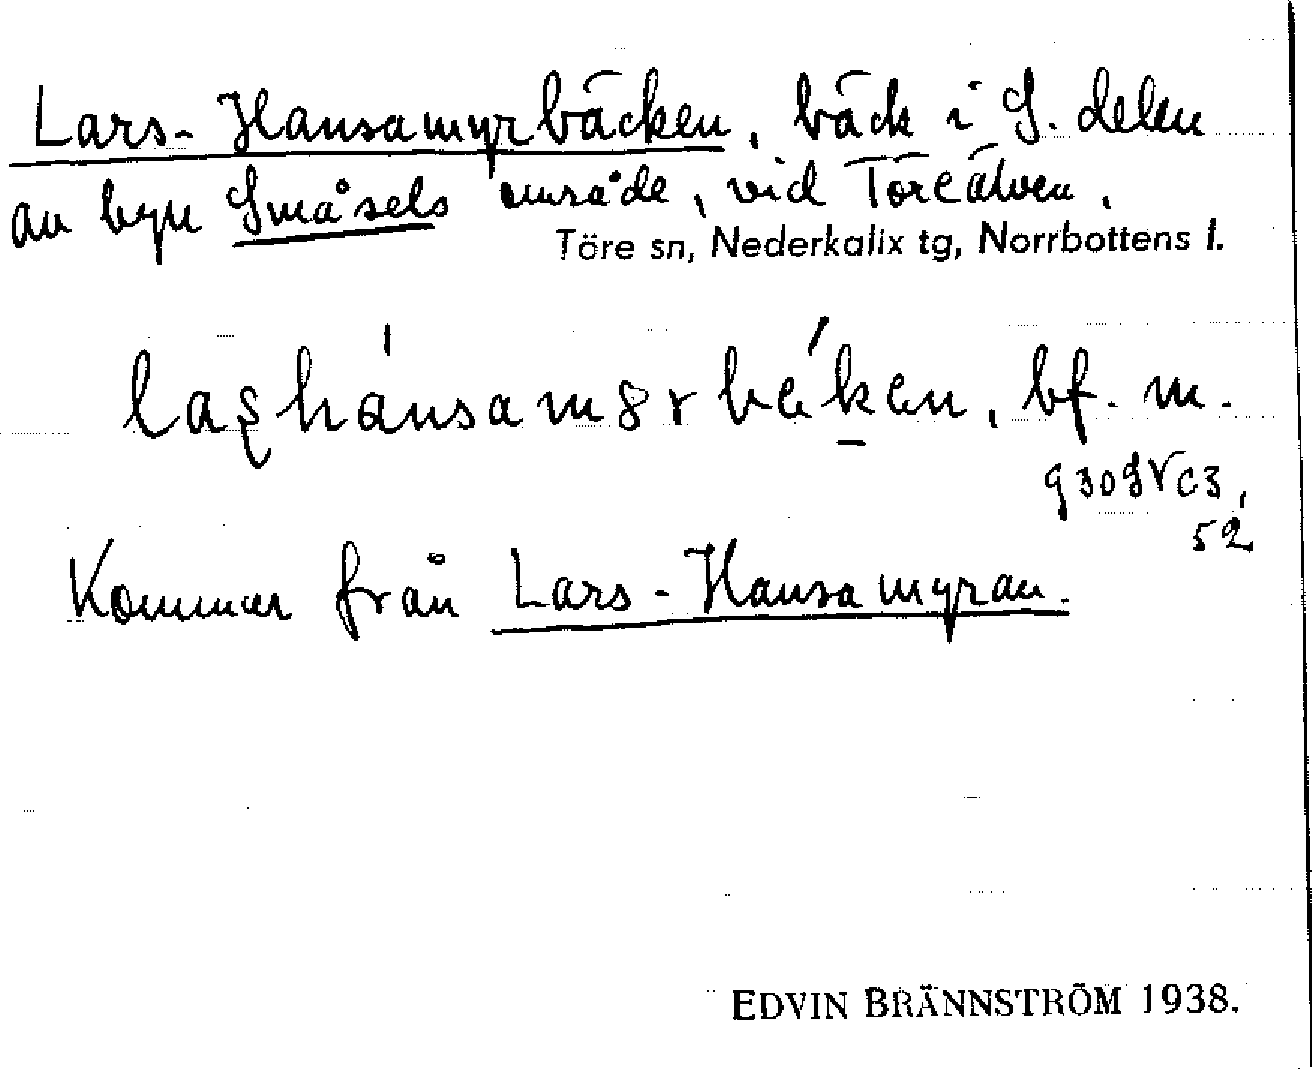 Lars-Hansamyrbäcken, bäck i S. delen
av byn Småsels område, vid Töreälven.
Töre sn, Nederkalix tg, Norrbottens l.
laʂhánsamȣrbék̠en, bf. m.
52
Kommer från Lars-Hansamyran.
EDVIN BRÄNNSTRÖM 1938.